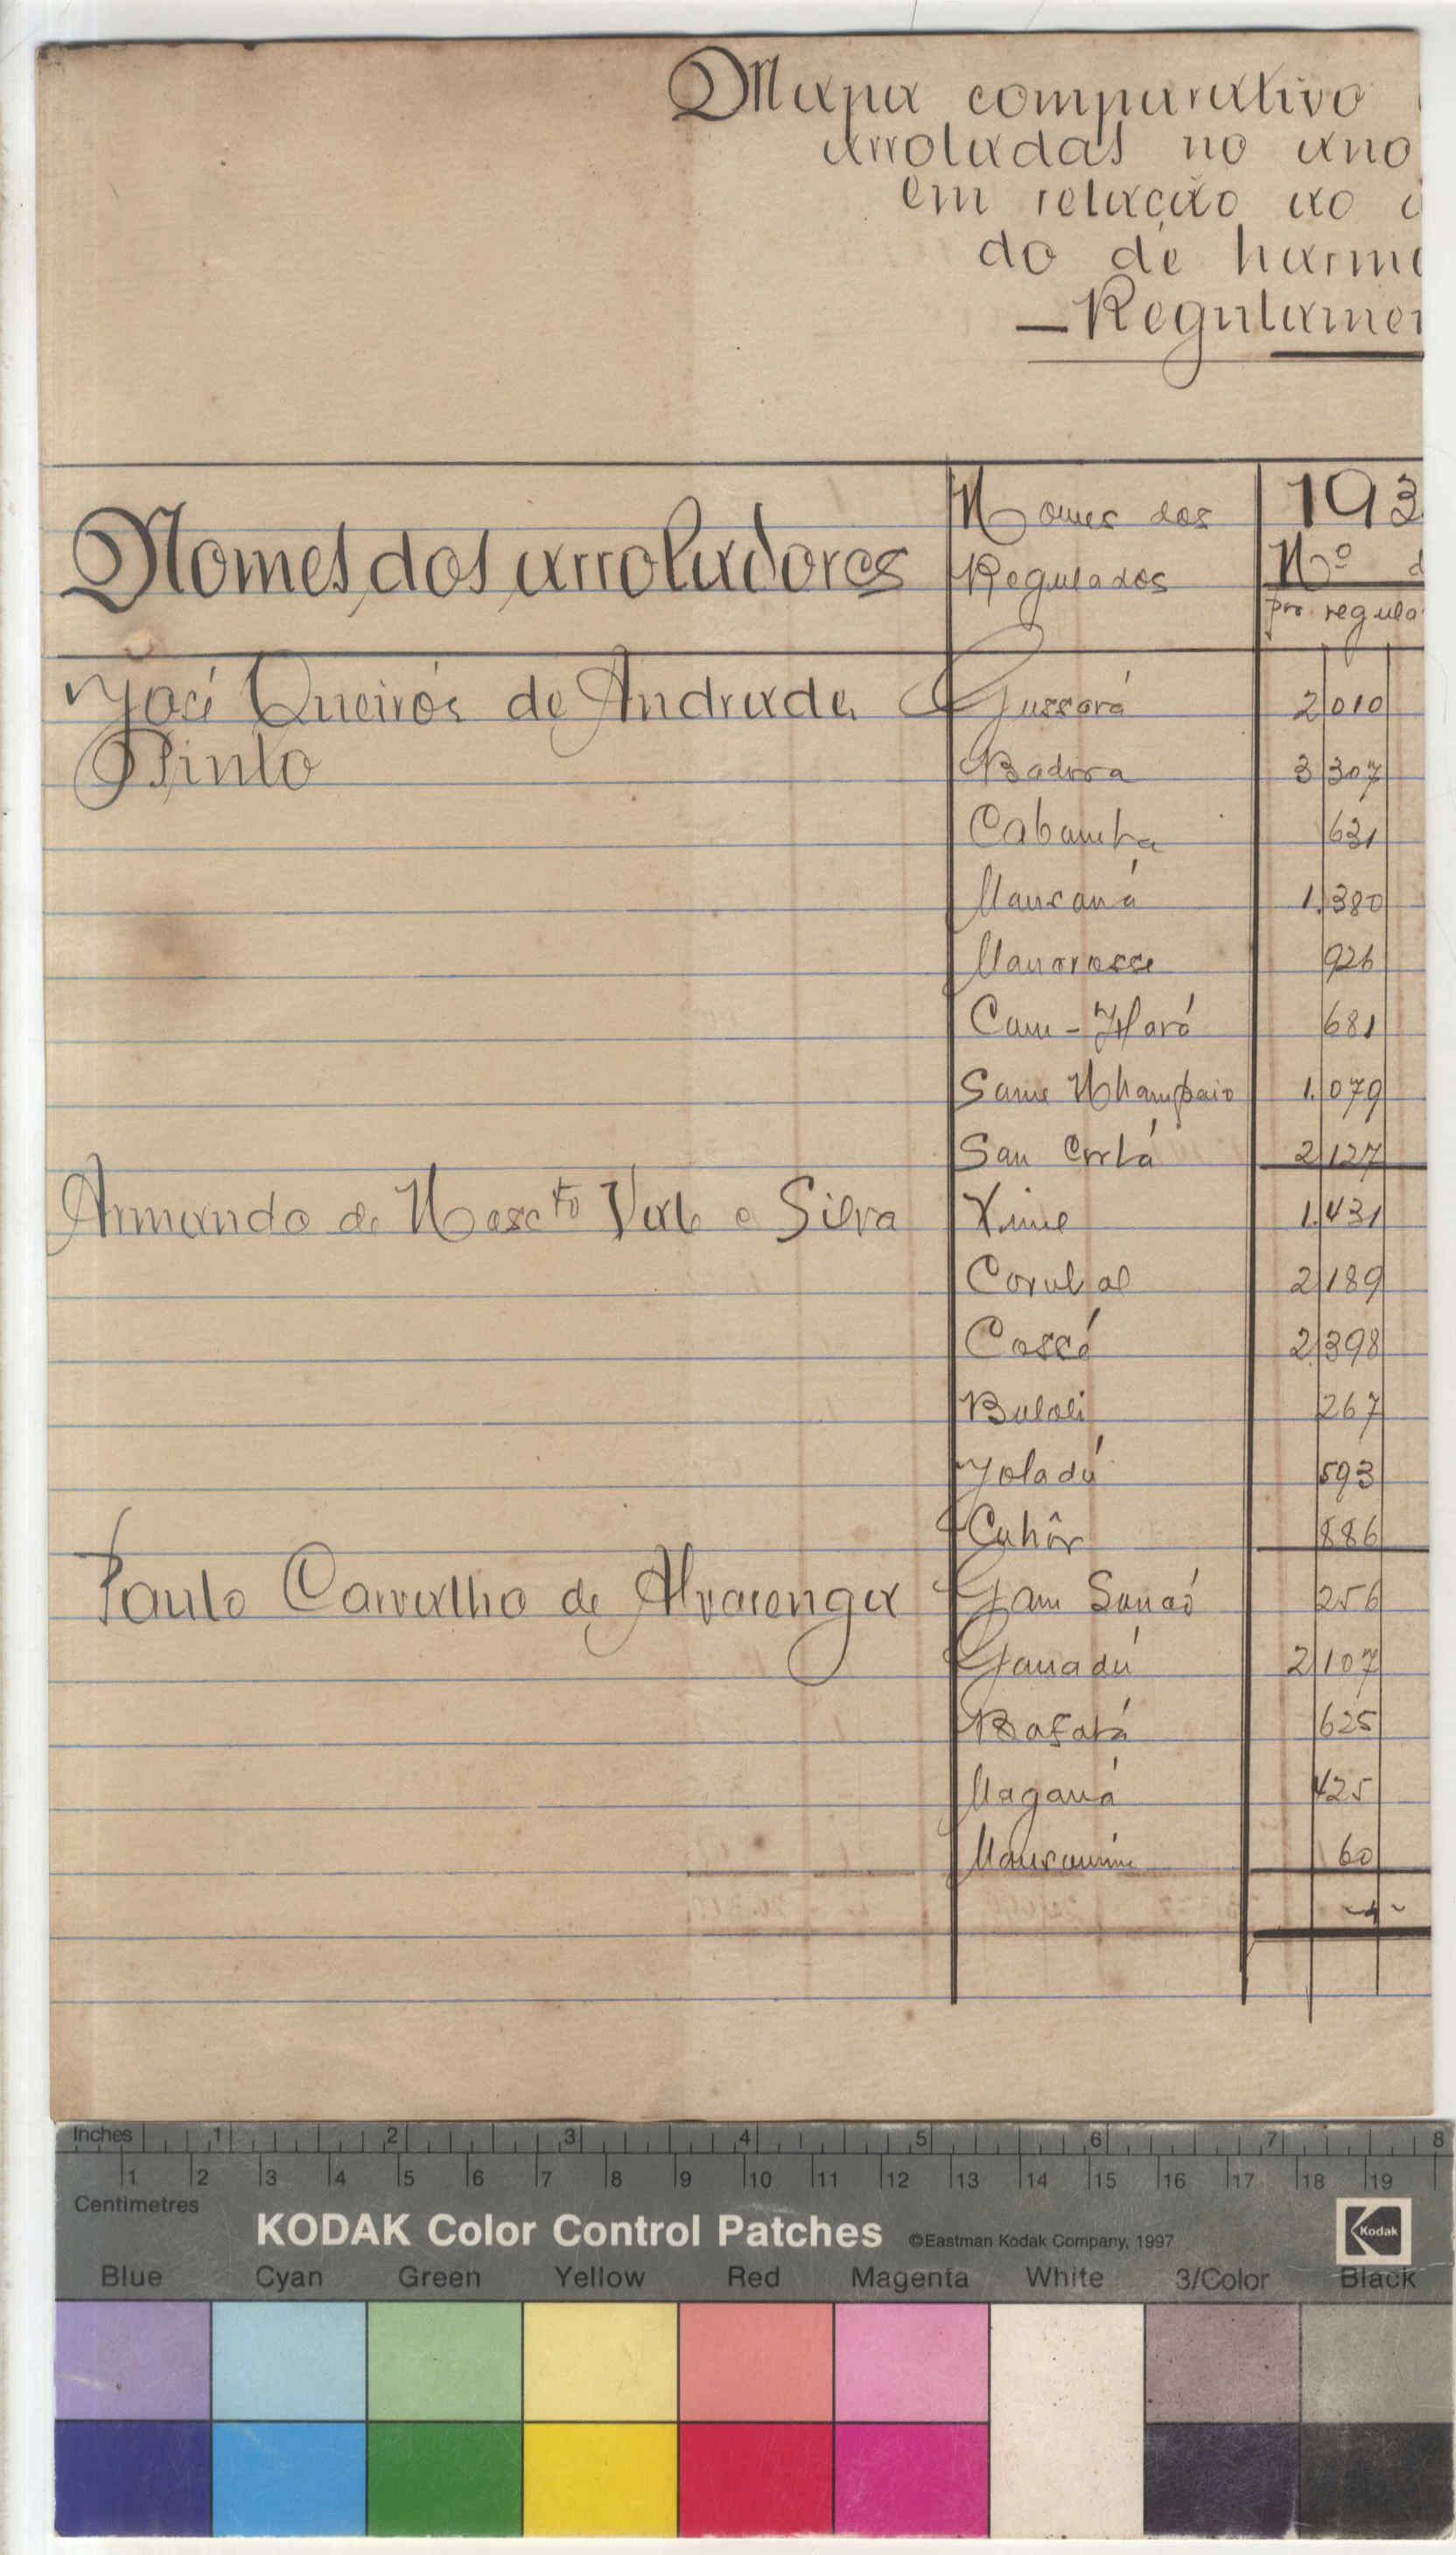 Mapa comparativo
arroladas no ano
em relação ao
do de harmo
Regulamen
Nomes dos arroladores
Nomes dos
Regulados
193
Nº d
por regula
José Queirós de Andrade Gussará 2 010
Pinto Badora 3 307
Cabomba 631
Mansaná 1.380
Manarosse 926
Cam-Haró 681
Same Nhampaio 1.079
San Corlá 2 127
Armando do Nascto Vale e Silva Xime 1.431
Corubal 2 189
Cossé 2.398
Buloli 267
Joladú 593
Cuhôr 886
Paulo Carvalho de Alvarenga Gam Sancó 256
Ganadú 2 107
Bafatá 625
Maganá 425
60
Inches 1 2 3 4 5 6 7 8
1 2 3 4 5 6 7 8 9 10 11 12 13 14 15 16 17 18 19
Centimetres
KODAK Color Control Patches ©Eastman Kodak Company, 1997 Kodak
Blue Cyan Green Yellow Red Magenta White 3/Color Black